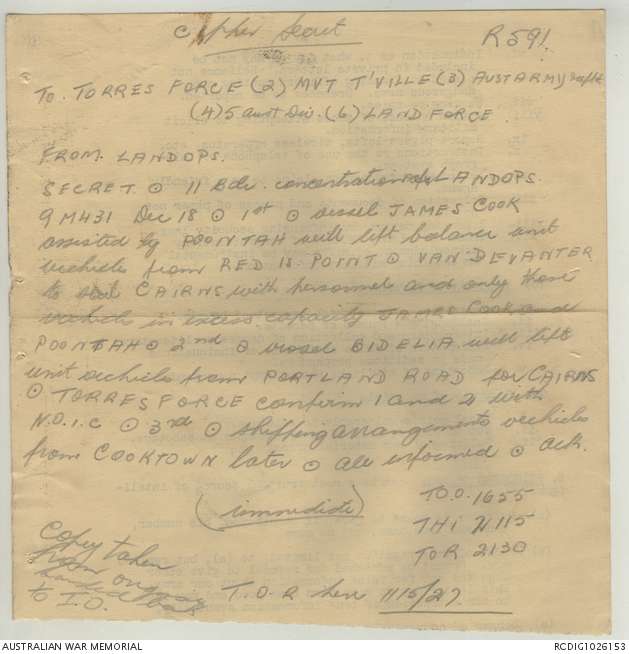 Cipher Secret
R591.
TO. TORRES FORCE (2) MVT T'VILLE (3) AUSTARMY
(4) 5 Aust Div. (6) LAND FORCE
FROM LANDOPS.
SECRET ⊙ 11 Bde. concentration LANDOPS
9M431 Dec 18 ⊙ 1st ⊙ vessel JAMES COOK
assisted by POONTAH will lift balance unit
vechicles from RED IS. POINT ⊙ VAN DEVANTER
to CAIRNS with personnel and only those
vechicles in excess capacity JAMES COOK and
POONTAH ⊙ 2nd ⊙ vessel BIDELIA will lift
unit vechicles from PORTLAND ROAD for CAIRNS
⊙ TORRES FORCE confirm 1 and 2 with
N.O.I.C ⊙ 3rd ⊙ shipping arrangements vechicles
from COOKTOWN later ⊙ all informed ⊙ ack.
(immediate)
T.O.O. 1655
THI 2115
TOR 2130
Copy taken
to I.O.
T.O.R here 1115/27
AUSTRALIAN WAR MEMORIAL
RCDIG1026153